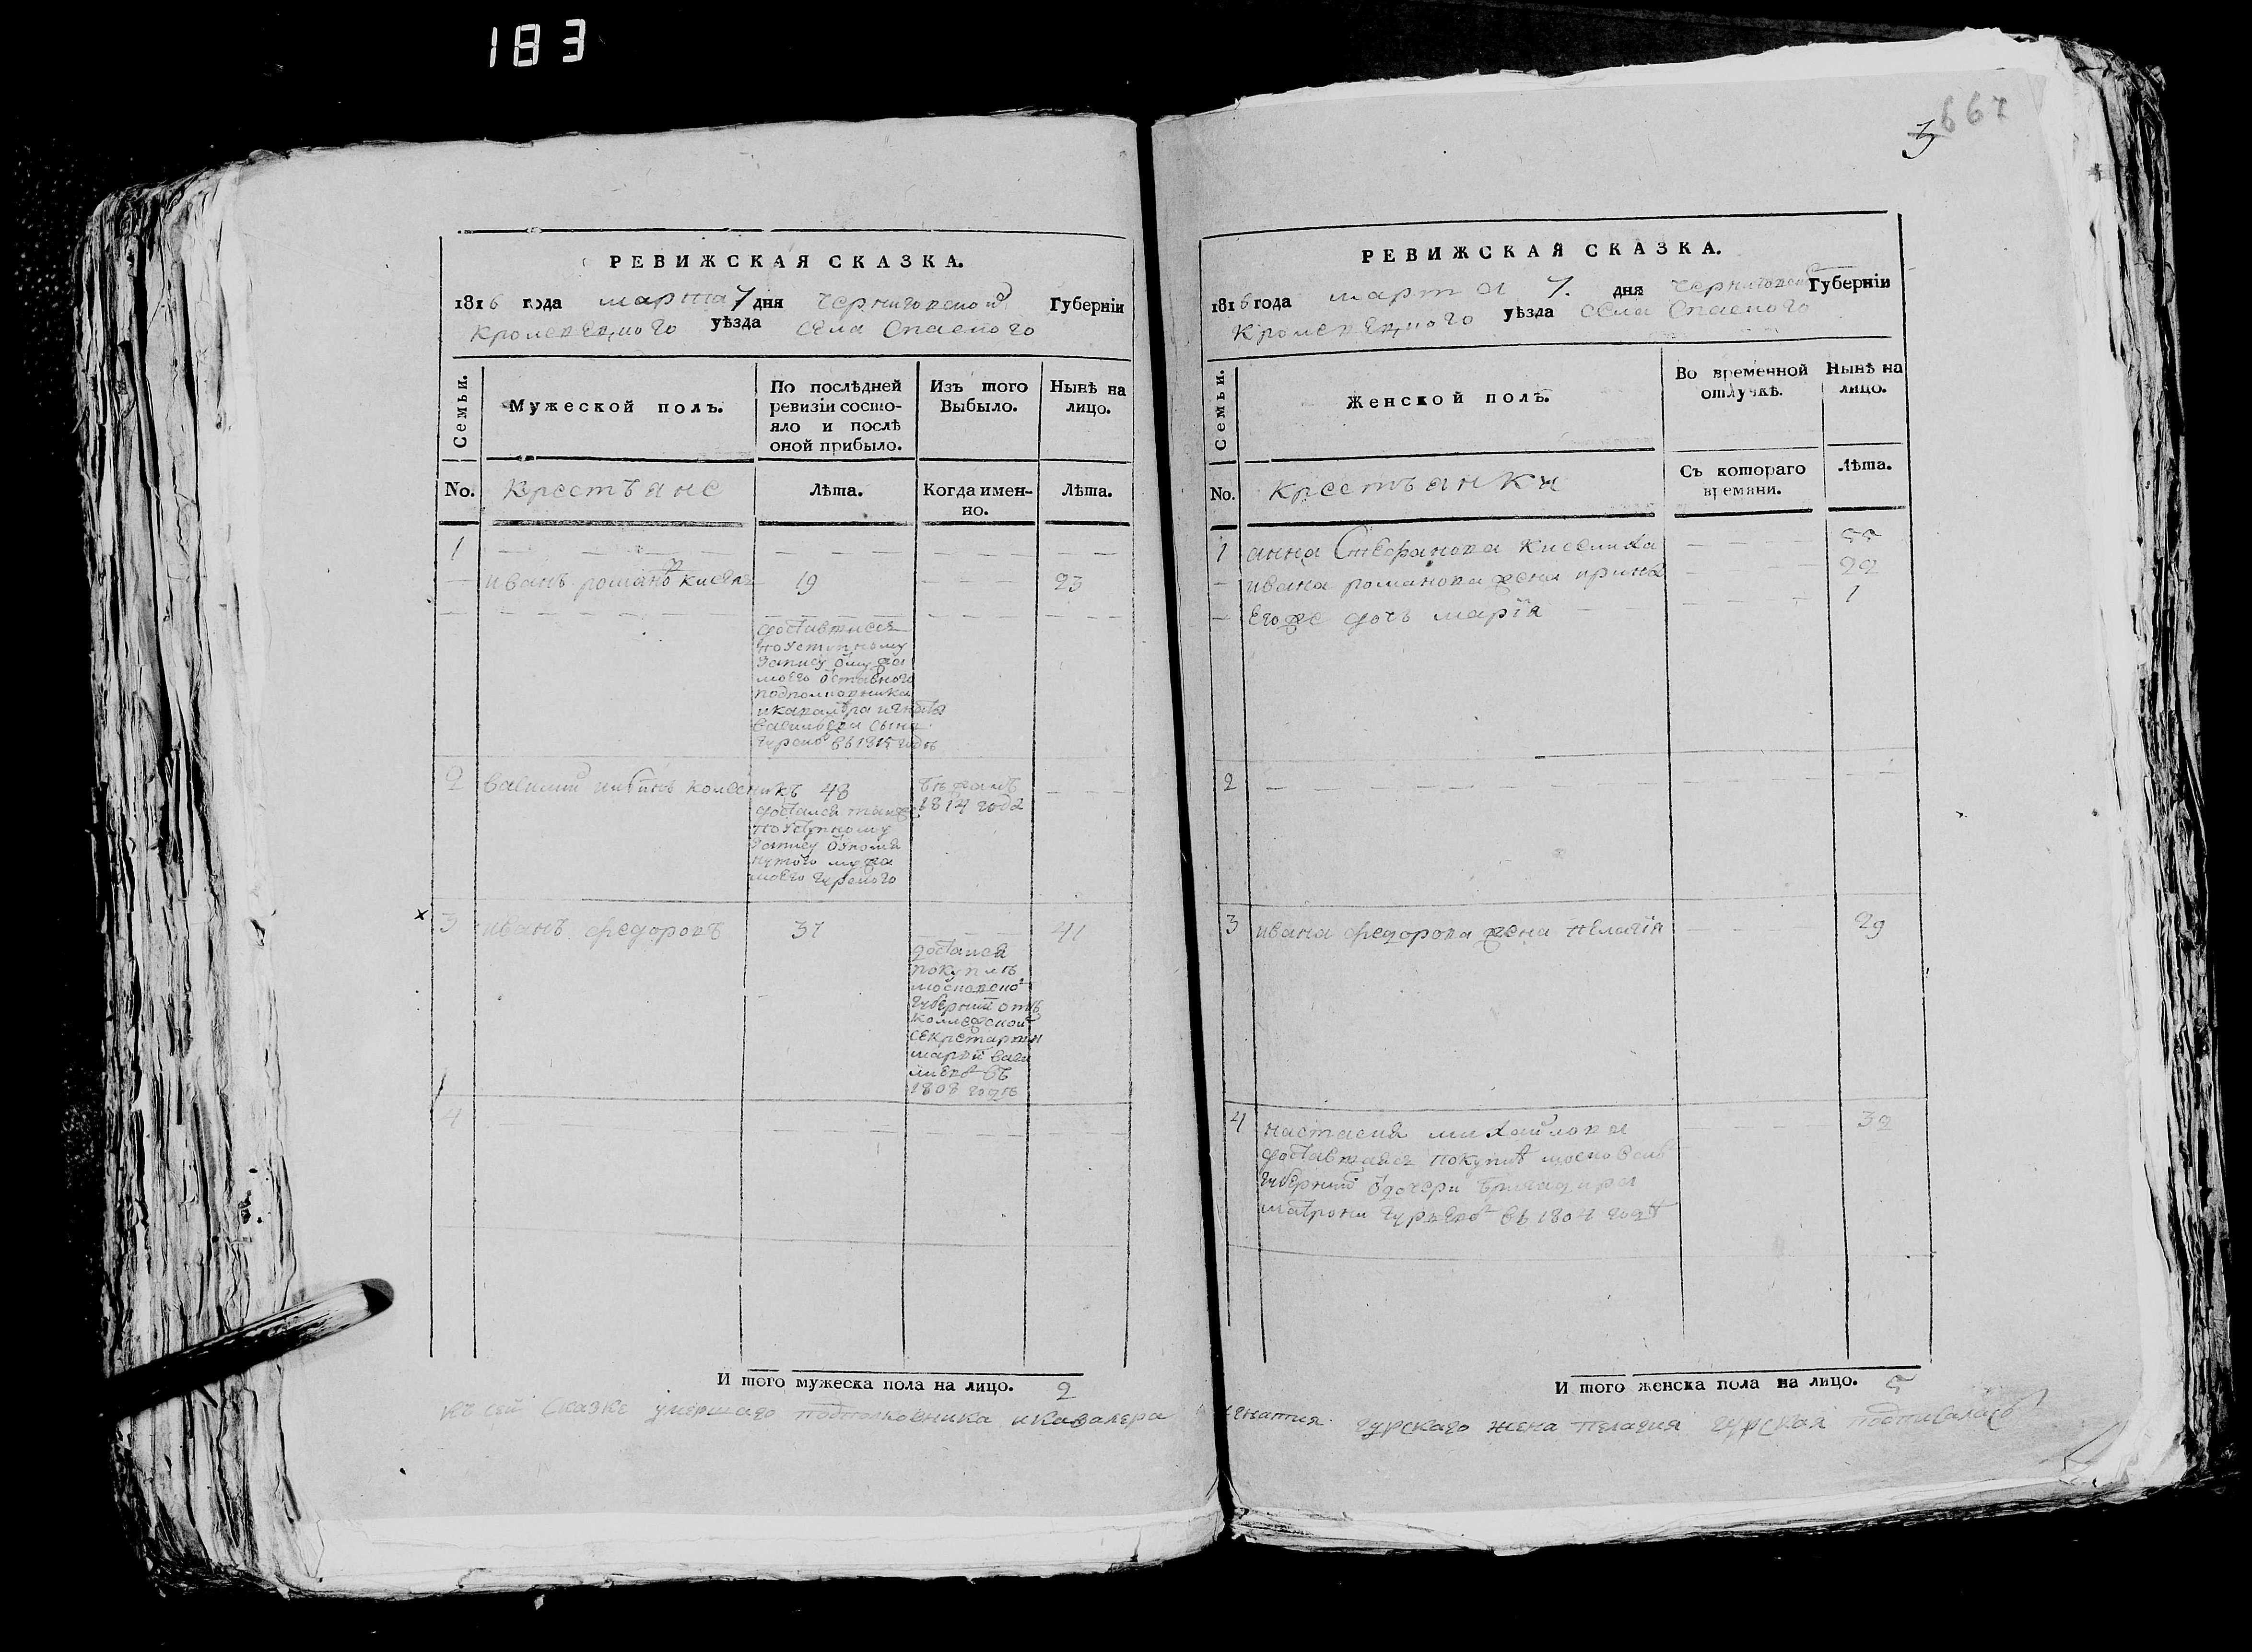 183
667
РЕВИЖСКАЯ СКАЗКА.
1816 года марта 7 дня Черниговской Губерніи
Кролевецного уѣзда села Спасного
Семьи.
Мужеской полъ.
По послѣдней
ревизіи состо-
яло и послѣ
оной прибыло.
Изъ того
Выбыло.
Нынѣ на
лицо.
No.
Крестъяне
Лѣта.
Когда имен-
но.
Лѣта.
1
иванъ романо кисель 19 23
доставшися
по уступному
запису о мужа
моего оставного
подполковника
и кавалѣра игнатѣя
василѣва сына
гурского въ 1815 годѣ
2 василий колесникъ 48
достался также
по уступному
запису о упомя
нутого мужа
моего гурского
1814 года
3 иванъ федоровъ 37 41
достался
покуплѣ
московской
губернии отъ
коллежской
секретарши
марѣи васи
лиевой въ
1808 годѣ
4
И того мужеска пола на лицо. 2
РЕВИЖСКАЯ СКАЗКА.
1816 года марта 7. дня Черниговской Губерніи
Кролевецного уѣзда села Спасного
Семьи.
Женской полъ.
Во временной
отлучкѣ.
Нынѣ на
лицо.
No.
крестъянки
Съ котораго
времяни.
Лѣта.
1 анна Стефанова Киселиха 55
ивана романова жена ирина 22
Его же дочъ марія 1
2
3 ивана федорова жена пелагія 29
4 настасия михайлова 32
доставшаясь покуплѣ московской
губернии о дочери бригадира
матрони гурѣевой въ 1804 годѣ
И того женска пола на лицо. 5
къ сей сказке умершаго подполковника и кавалера игнатия гурскаго жена пелагия гурская подписалась